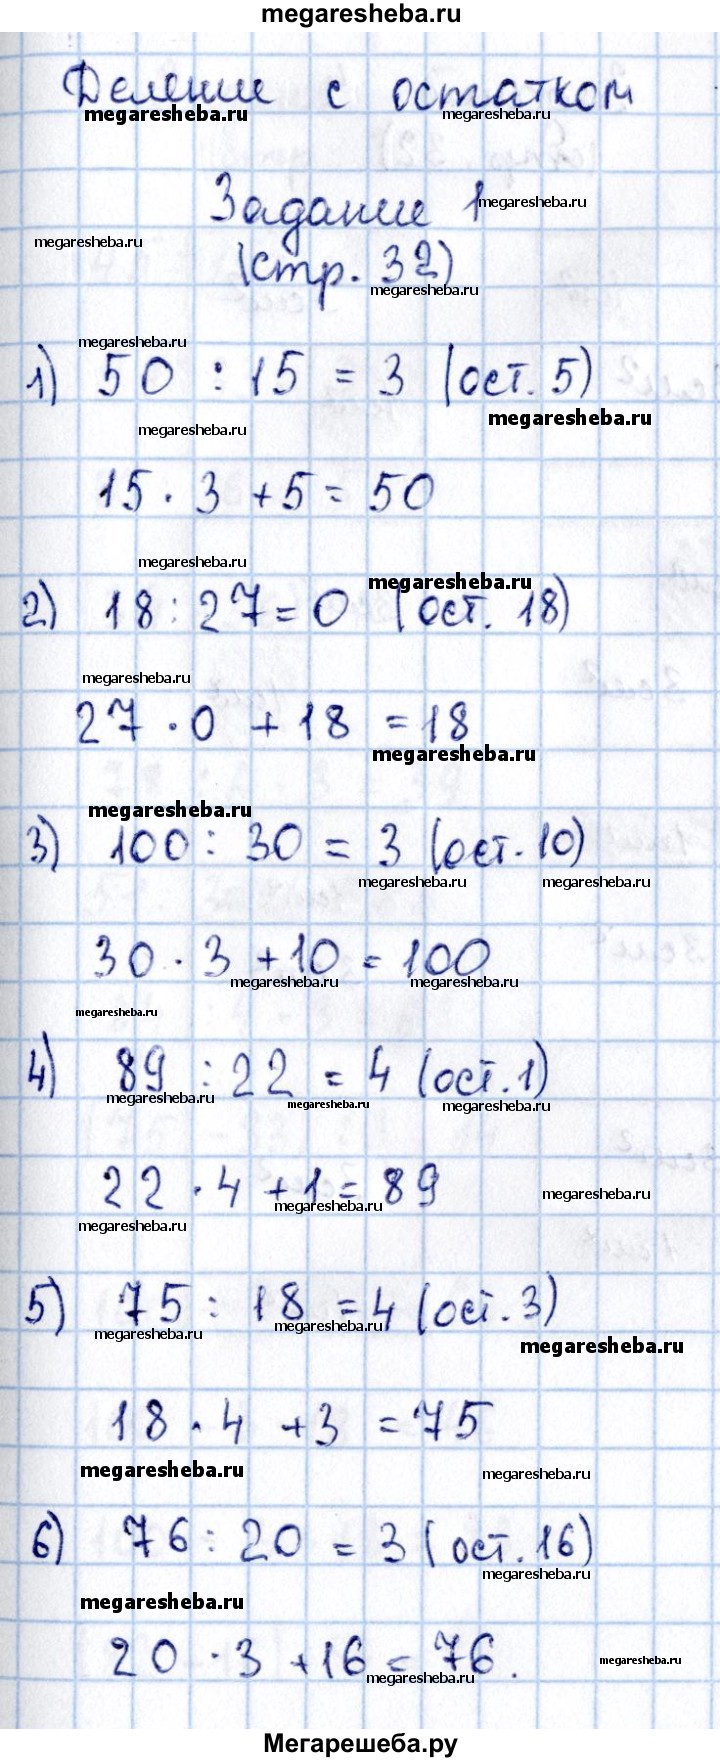 megaresheba.ru
Деление с остатком
megaresheba.ru megaresheba.ru
Задание 1
megaresheba.ru
megaresheba.ru
(стр. 32)
megaresheba.ru
megaresheba.ru
1) 50 : 15 = 3 (ост. 5)
megaresheba.ru
megaresheba.ru
15 · 3 + 5 = 50
megaresheba.ru
megaresheba.ru
2) 18 : 27 = 0 (ост. 18)
megaresheba.ru
27 · 0 + 18 = 18
megaresheba.ru
megaresheba.ru
3) 100 : 30 = 3 (ост. 10)
megaresheba.ru megaresheba.ru
30 · 3 + 10 = 100
megaresheba.ru megaresheba.ru
megaresheba.ru
4) 89 : 22 = 4 (ост. 1)
megaresheba.ru megaresheba.ru megaresheba.ru
22 · 4 + 1 = 89
megaresheba.ru
megaresheba.ru
megaresheba.ru
5) 75 : 18 = 4 (ост. 3)
megaresheba.ru megaresheba.ru
megaresheba.ru
18 · 4 + 3 = 75
megaresheba.ru megaresheba.ru
6) 76 : 20 = 3 (ост. 16)
megaresheba.ru
megaresheba.ru
20 · 3 + 16 = 76.
megaresheba.ru
megaresheba.ru
Мегарешеба.ру